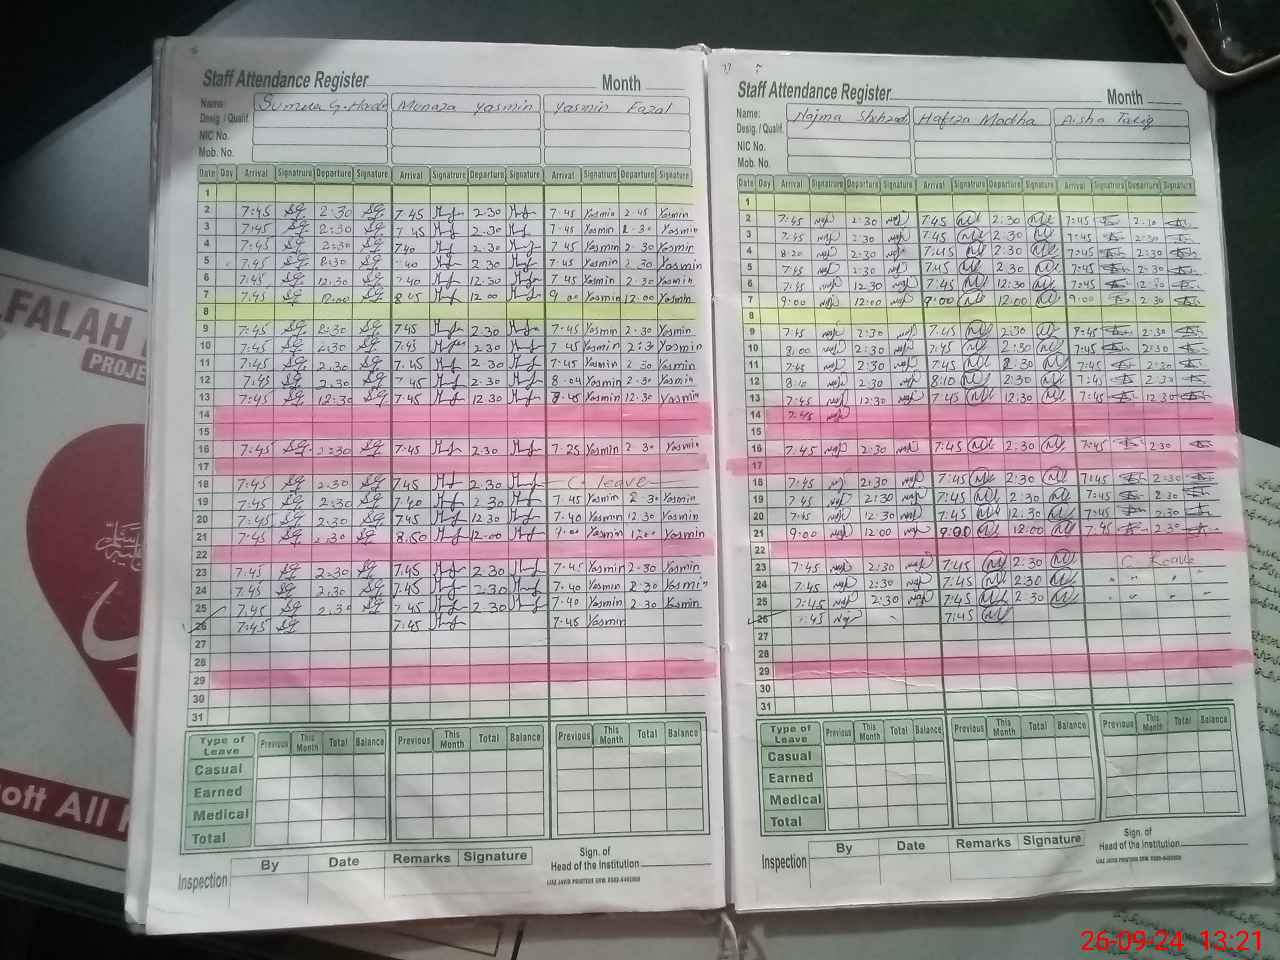 Staff Attendance Register Month
Name: Munaza Yasmin Yasmin Fazal
Desig. / Qualif.
NIC No.
Mob. No.
Date Day Arrival Signatrure Departure Signature Arrival Signatrure Departure Signature Arrival Signatrure Departure Signature
1
2 7:45 2:30 7:45 2:30 7:45 Yasmin 2:45 Yasmin
3 7:45 2:30 7:45 2:30 7:45 Yasmin 2:30 Yasmin
4 7:45 2:30 7:40 2:30 7:45 Yasmin 2:30 Yasmin
5 7:45 2:30 7:40 2:30 7:45 Yasmin 2:30 Yasmin
6 7:45 12:30 7:40 12:30 7:45 Yasmin 12:30 Yasmin
7 7:45 12:00 8:45 12:00 9:00 Yasmin 12:00 Yasmin
8
9 7:45 2:30 7:45 2:30 7:45 Yasmin 2:30 Yasmin
10 7:45 2:30 7:45 2:30 7:45 Yasmin 2:30 Yasmin
11 7:45 2:30 7:45 2:30 7:45 Yasmin 2:30 Yasmin
12 7:45 2:30 7:45 2:30 8:04 Yasmin 2:30 Yasmin
13 7:45 12:30 7:45 12:30 Yasmin 12:30 Yasmin
14
15
16 7:45 2:30 7:45 2:30 7:25 Yasmin 2:30 Yasmin
17
18 7:45 2:30 7:45 2:30 C leave
19 7:45 2:30 7:40 2:30 7:45 Yasmin 2:30 Yasmin
20 7:45 2:30 7:45 12:30 7:40 Yasmin 12:30 Yasmin
21 7:45 2:30 8:50 12:00 9:00 Yasmin 12:00 Yasmin
22
23 7:45 2:30 7:45 2:30 7:45 Yasmin 2:30 Yasmin
24 7:45 2:30 7:45 2:30 7:40 Yasmin 2:30 Yasmin
25 7:45 2:30 7:45 2:30 7:40 Yasmin 2:30 Yasmin
26 7:45 7:45 7:45 Yasmin
27
28
29
30
31
Type of Leave Previous This Month Total Balance Previous This Month Total Balance Previous This Month Total Balance
Casual
Earned
Medical
Total
By Date Remarks Signature Sign. of
Head of the Institution
Inspection
Staff Attendance Register Month
Name: Najma Shehzadi Hafiza Madha Aisha Tariq
Desig. / Qualif.
NIC No.
Mob. No.
Date Day Arrival Signatrure Departure Signature Arrival Signatrure Departure Signature Arrival Signatrure Departure Signature
1
2 7:45 2:30 7:45 2:30 7:45 2:30
3 7:45 2:30 7:45 2:30 7:45 2:30
4 8:20 2:30 7:45 2:30 7:45 2:30
5 7:45 2:30 7:45 2:30 7:45 2:30
6 7:45 12:30 7:45 12:30 7:45 12:30
7 9:00 12:00 9:00 12:00 9:00 2:30
8
9 7:45 2:30 7:45 2:30 7:45 2:30
10 8:00 2:30 7:45 2:30 7:45 2:30
11 7:45 2:30 7:45 2:30 7:45 2:30
12 8:10 2:30 8:10 2:30 7:45 2:30
13 7:45 12:30 7:45 12:30 7:45 12:30
14 7:45
15
16 7:45 2:30 7:45 2:30 7:45 2:30
17
18 7:45 2:30 7:45 2:30 7:45 2:30
19 7:45 2:30 7:45 2:30 7:45 2:30
20 7:45 12:30 7:45 12:30 7:45 2:30
21 9:00 12:00 9:00 12:00 7:45 2:30
22
23 7:45 2:30 7:45 2:30 C Leave
24 7:45 2:30 7:45 2:30 " " "
25 7:45 2:30 7:45 2:30 " " "
26 7:45 7:45
27
28
29
30
31
Type of Leave Previous This Month Total Balance Previous This Month Total Balance Previous This Month Total Balance
Casual
Earned
Medical
Total
By Date Remarks Signature Sign. of
Head of the Institution
Inspection
FALAH
PROJE
ott All
26-09-24 13:21